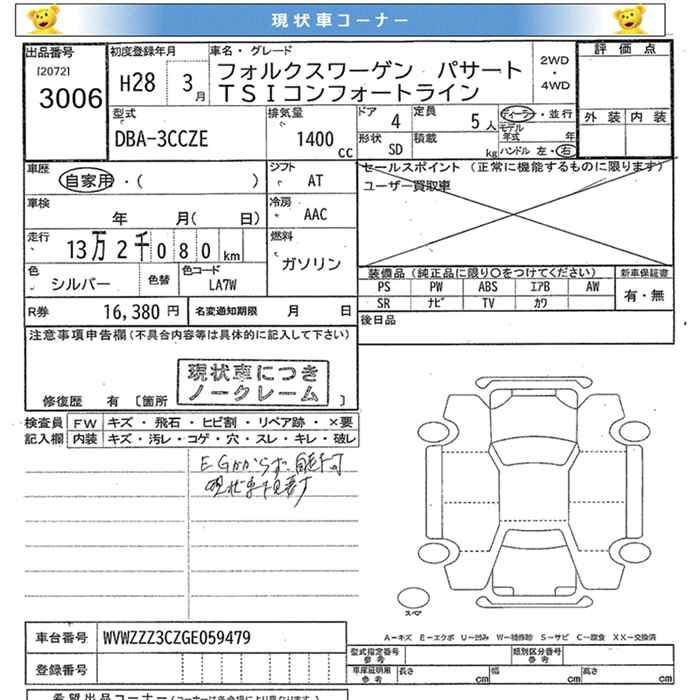 現状車コーナー
出品番号 初度登録年月 車名・グレード 2WD・4WD 評価点
[2072] 3006 H28 3月 フォルクスワーゲン パサート
TSIコンフォートライン
外装 内装
型式 排気量 ドア 定員 ディーラー・並行
DBA-3CCZE 1400cc 4 5人 モデル年式 年
形状 SD 積載 kg ハンドル 左・右
車歴 シフト セールスポイント (正常に機能するものに限ります)
自家用・( ) AT ユーザー買取車
車検 冷房
年 月( 日) AAC
走行 燃料
13万2千080km ガソリン
色 色替 色コード 装備品(純正品に限り○をつけてください) 新車保証書
シルバー LA7W PS PW ABS エアB AW 有・無
SR ナビ TV カワ
R券 16,380円 名変通知期限 月 日 後日品
注意事項申告欄(不具合内容等は具体的に記入して下さい)
現状車につき
ノークレーム
修復歴 有 [箇所 ]
検査員 FW キズ・飛石・ヒビ割・リペア跡・×要
記入欄 内装 キズ・汚レ・コゲ・穴・スレ・キレ・破レ
EGかからず
現状車
スペア
A－キズ E－エクボ U－凹み W－補修跡 S－サビ C－腐食 XX－交換済
車台番号 WVWZZZ3CZGE059479
型式指定番号 参考 類別区分番号 参考
登録番号 車庫証明用 参考 長さ cm 幅 cm 高さ cm
希望出品コーナー